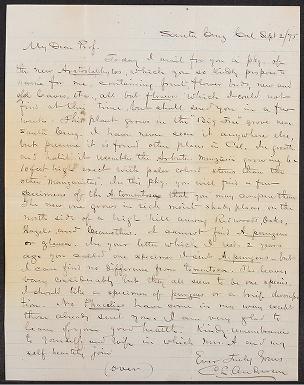 Santa Cruz Cal Sept 2/75
My Dear Prof.
Today I mail for you a pkg. of
the new Arctostaphylos, which you so kindly propose to
name for me, containing fruit, flower buds, new and
old leaves, &c., all but flowers which I could not
find at this time, but shall send you in a few
. This plant grows in the "Big Tree" grove near
Santa Cruz. I have never seen it anywhere else,
but presume it is found other places in Cal. In growth
and habit it resembles the Arbute Menziesii growing
10 feet high erect with paler colored stems than the
other Manzanitas. In this pkg. you will find a few
specimens of the A. tomentosa that you may compare them.
The new one grows in rich moist shady places on the
north side of a high hill among Redwoods, Oaks,
Hazels and Ceanothus. I cannot find A. pungens
or glauca. In your letter which I rec'd 2 years
ago you called one specimen I sent A. pungens - but
I can find no difference from tomentosa. The leaves
vary considerably but they all seem to be one species.
I should like a specimen of pungens or a brief descrip-
tion. No have come in my way except
those already sent you. I am very glad to
learn of your good health. Kind remembrance
to yourself and wife in which Mrs. A. and my
self heartily join
Ever truly Yours
C L Anderson
(over)